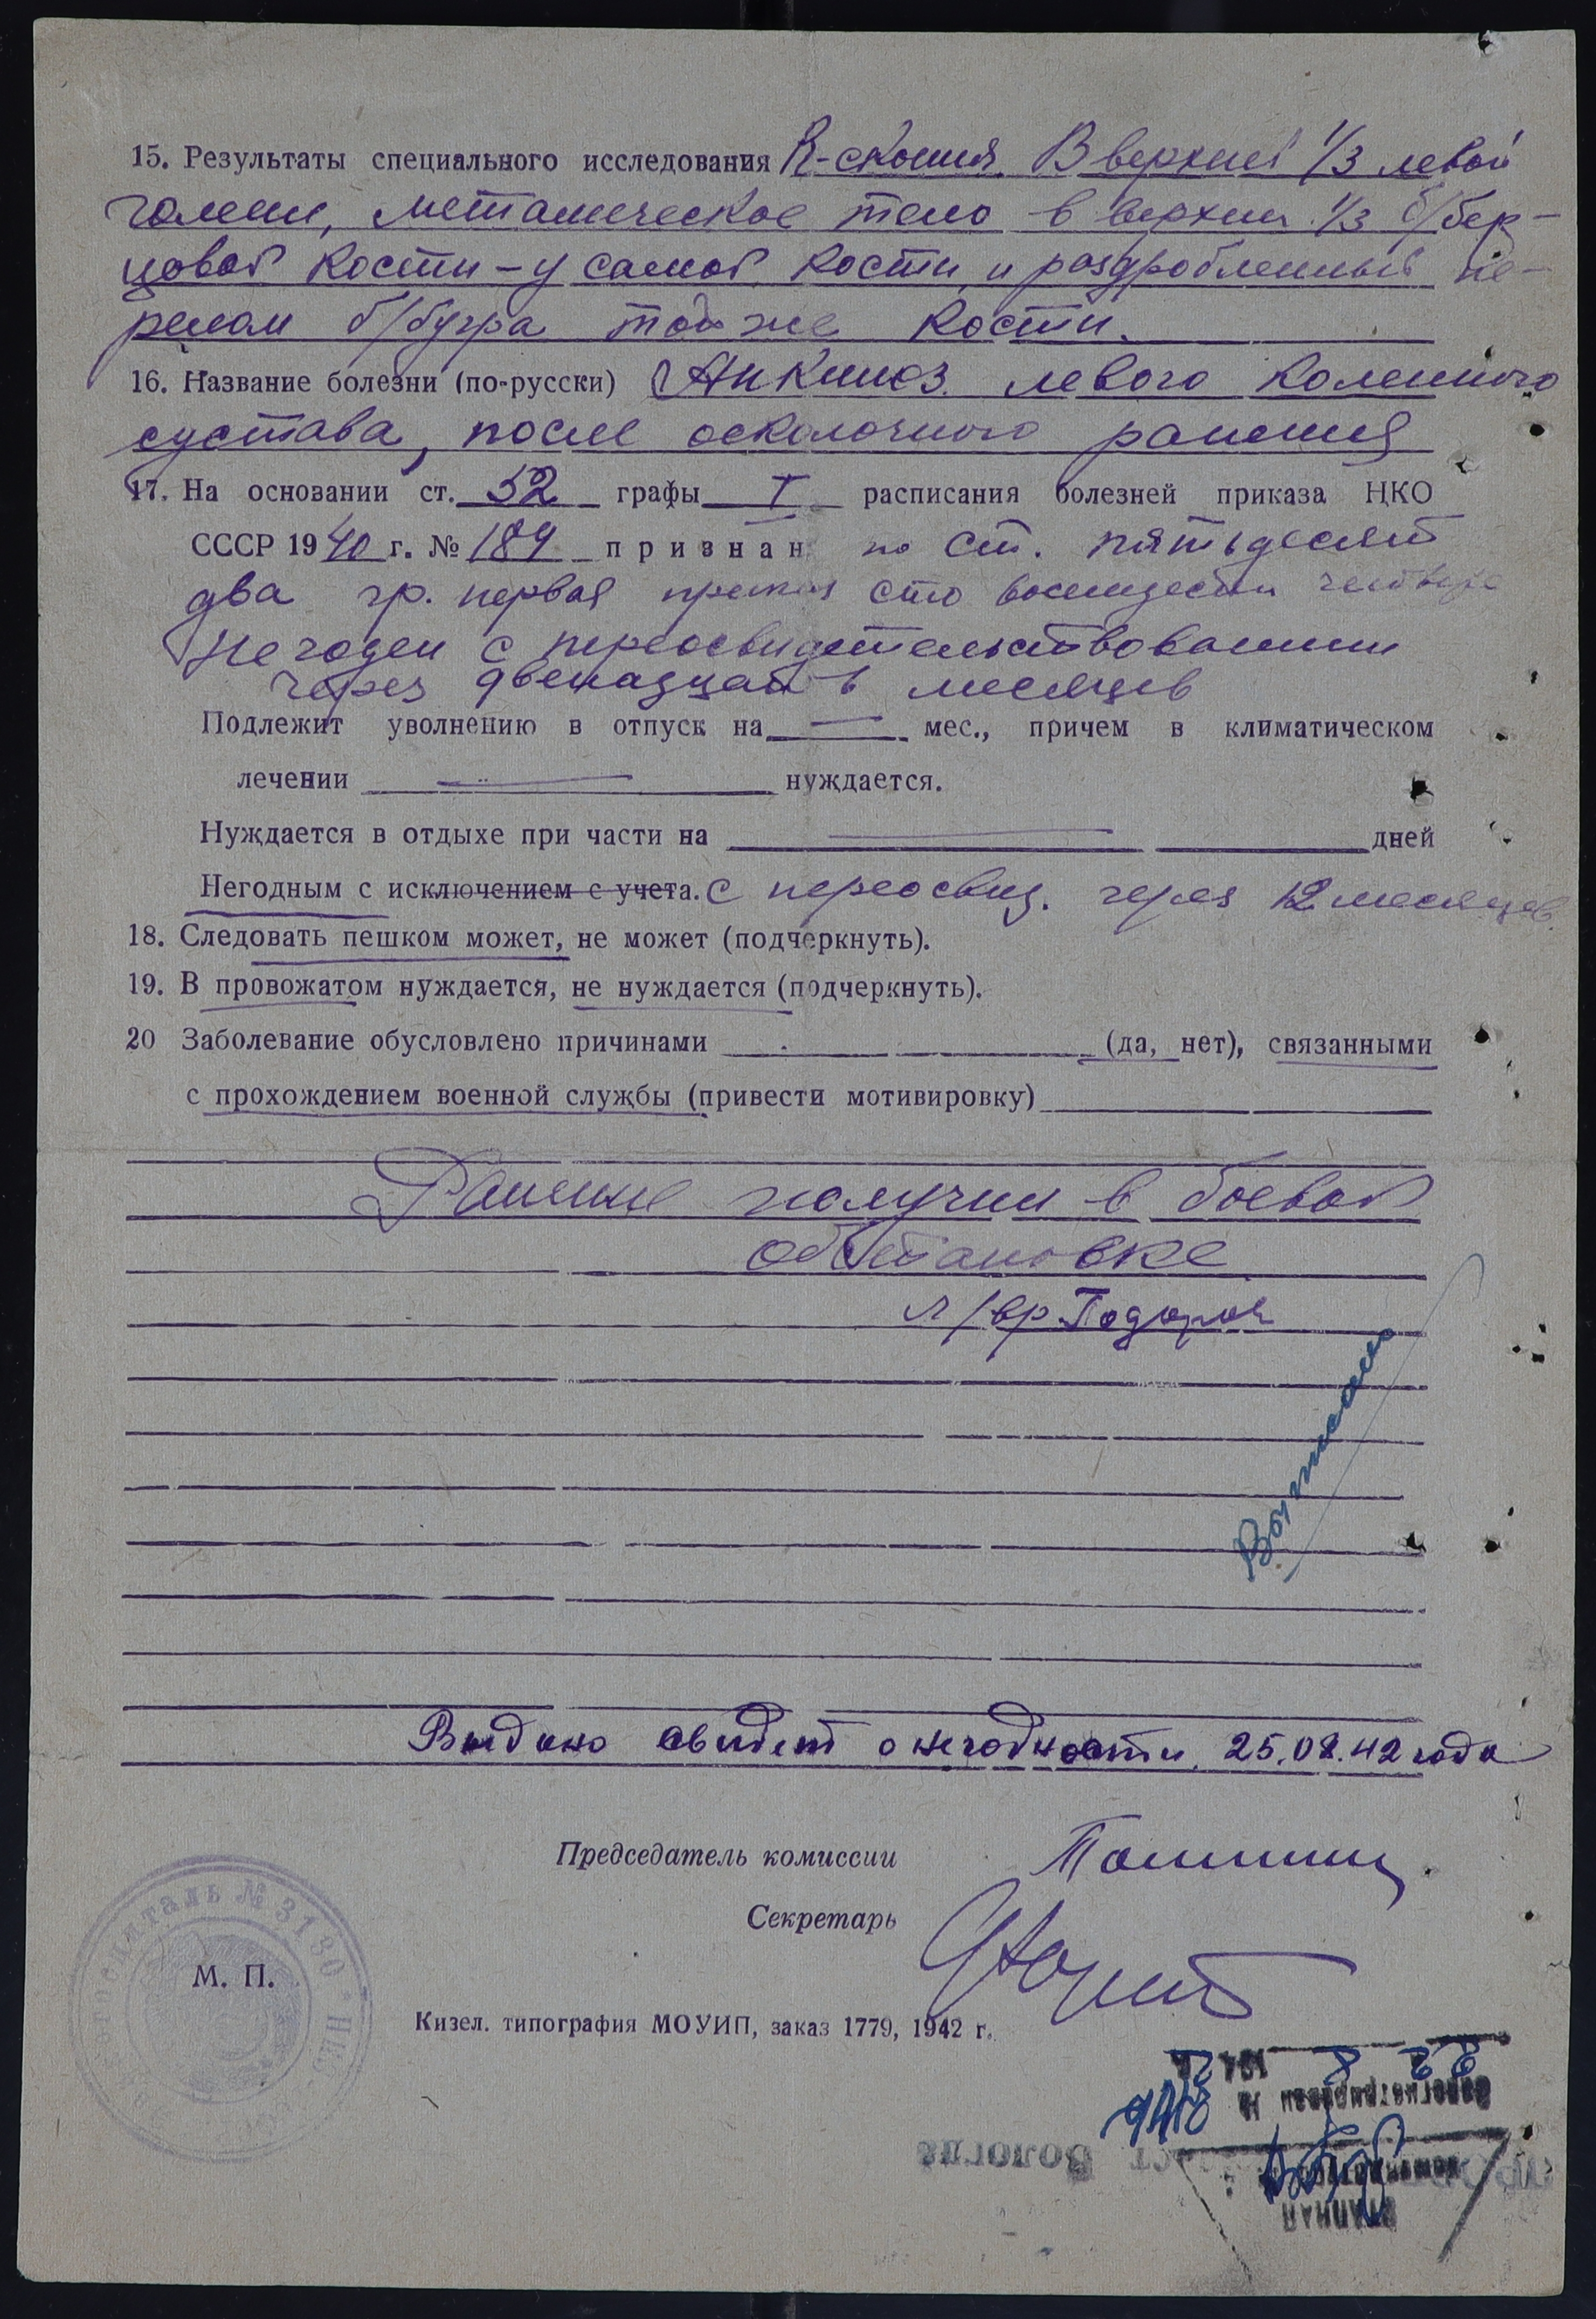 15. Результаты специального исследования R-скопия. В верхней 1/3 левой
голени, металическое тело в верхней 1/3 б/бер-
цовой кости - у самой кости, и раздробленный пе-
релом б/бугра той же кости.
16. Название болезни (по-русски) Анкилоз левого коленного
сустава, после осколочного ранения
17. На основании ст. 52 графы I расписания болезней приказа НКО
СССР 1940 г. № 184 признан по ст. пятьдесят
два гр. первая приказа сто восемдесят четыре
Не годен с переосвидетельствованием
через двенадцать месяцев
Подлежит уволнению в отпуск на — мес., причем в климатическом
лечении — нуждается.
Нуждается в отдыхе при части на — дней
Негодным с исключением с учета. с переосвид. через 12 месяцев.
18. Следовать пешком может, не может (подчеркнуть).
19. В провожатом нуждается, не нуждается (подчеркнуть).
20 Заболевание обусловлено причинами (да, нет), связанными
с прохождением военной службы (привести мотивировку)
Ранение получил в боевой
обстановке
л/вр
Выписано
Выдано свидет о негодности 25.08.42 года
Председатель комиссии
Секретарь
госпиталь № 3180 * НКО
М. П.
Кизел. типография МОУИП, заказ 1779, 1942 г.
Вологда